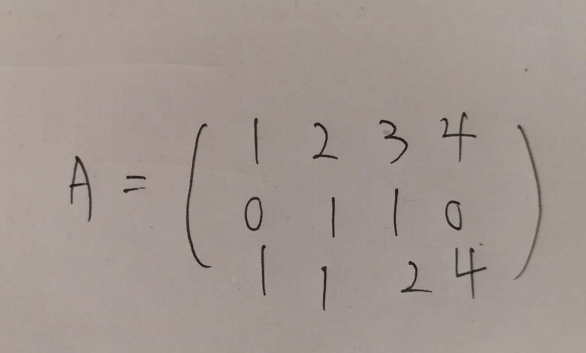 1 2 3 4
A = ( 0 1 1 0 )
1 1 2 4